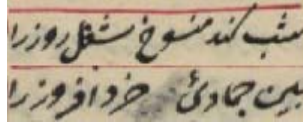 شب کند منسوخ شغل روز را
بین جمادئ خرد افروز را